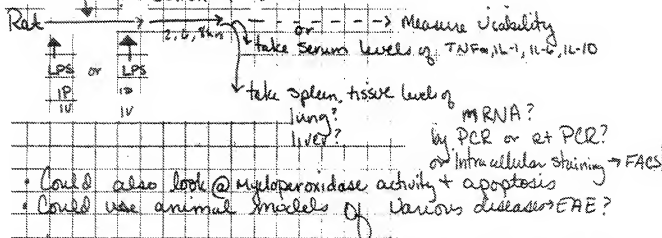 Rat
or
Measure viability
2, 6, 8 hrs
take serum levels of TNFα, IL-1, IL-6, IL-10
LPS or LPS
IP IP
IV IV
take spleen, tissue levels of
lung?
liver?
mRNA?
by PCR or RT PCR?
or Intracellular staining → FACS
• Could also look @ Myeloperoxidase activity + apoptosis
• Could use animal models of various diseases → EAE?